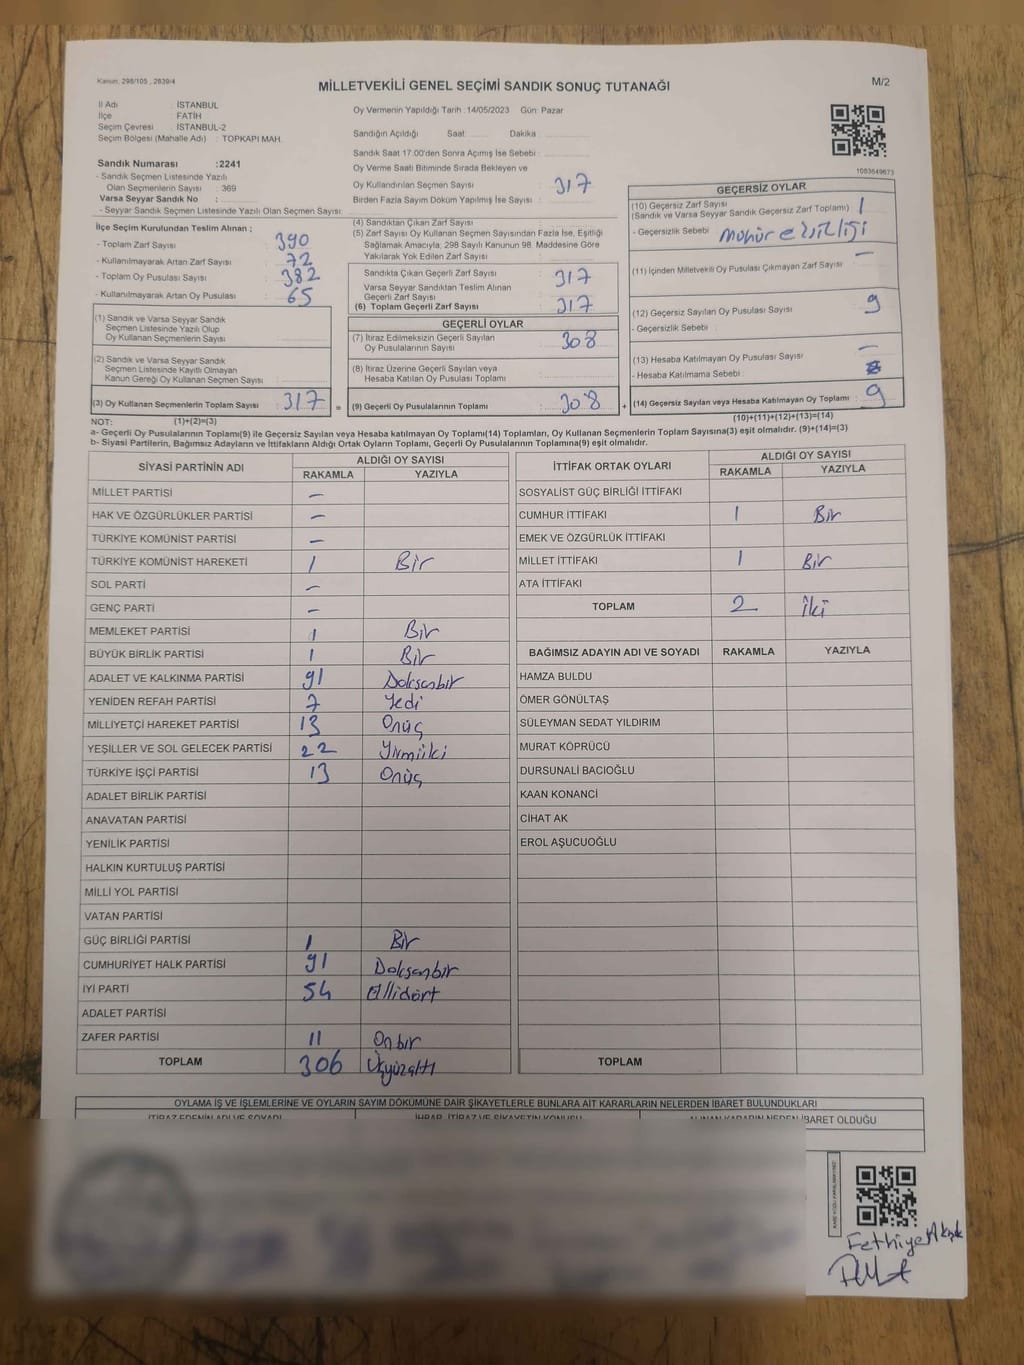 Kanun: 298/105 , 2839/4
MİLLETVEKİLİ GENEL SEÇİMİ SANDIK SONUÇ TUTANAĞI
M/2
İl Adı : İSTANBUL
İlçe : FATİH
Seçim Çevresi : İSTANBUL-2
Seçim Bölgesi (Mahalle Adı) : TOPKAPI MAH.
Sandık Numarası :2241
- Sandık Seçmen Listesinde Yazılı
Olan Seçmenlerin Sayısı : 369
Varsa Seyyar Sandık No :
- Seyyar Sandık Seçmen Listesinde Yazılı Olan Seçmen Sayısı:
Oy Vermenin Yapıldığı Tarih :14/05/2023 Gün: Pazar
Sandığın Açıldığı Saat: Dakika :
Sandık Saat 17.00'den Sonra Açılmış İse Sebebi :
Oy Verme Saati Bitiminde Sırada Bekleyen ve
Oy Kullandırılan Seçmen Sayısı : 317
Birden Fazla Sayım Döküm Yapılmış İse Sayısı :
1083649673
İlçe Seçim Kurulundan Teslim Alınan ;
- Toplam Zarf Sayısı : 390
- Kullanılmayarak Artan Zarf Sayısı : 72
- Toplam Oy Pusulası Sayısı : 382
- Kullanılmayarak Artan Oy Pusulası : 65
(1) Sandık ve Varsa Seyyar Sandık
Seçmen Listesinde Yazılı Olup
Oy Kullanan Seçmenlerin Sayısı :
(2) Sandık ve Varsa Seyyar Sandık
Seçmen Listesinde Kayıtlı Olmayan
Kanun Gereği Oy Kullanan Seçmen Sayısı :
(3) Oy Kullanan Seçmenlerin Toplam Sayısı : 317 =
(4) Sandıktan Çıkan Zarf Sayısı :
(5) Zarf Sayısı Oy Kullanan Seçmen Sayısından Fazla İse, Eşitliği
Sağlamak Amacıyla; 298 Sayılı Kanunun 98. Maddesine Göre
Yakılarak Yok Edilen Zarf Sayısı :
Sandıkta Çıkan Geçerli Zarf Sayısı : 317
Varsa Seyyar Sandıktan Teslim Alınan
Geçerli Zarf Sayısı
(6) Toplam Geçerli Zarf Sayısı : 317
GEÇERLİ OYLAR
(7) İtiraz Edilmeksizin Geçerli Sayılan
Oy Pusulalarının Sayısı : 308
(8) İtiraz Üzerine Geçerli Sayılan veya
Hesaba Katılan Oy Pusulası Toplamı :
(9) Geçerli Oy Pusulalarının Toplamı : 308 +
GEÇERSİZ OYLAR
(10) Geçersiz Zarf Sayısı
(Sandık ve Varsa Seyyar Sandık Geçersiz Zarf Toplamı) : 1
- Geçersizlik Sebebi : Mühür eksikliği
(11) İçinden Milletvekili Oy Pusulası Çıkmayan Zarf Sayısı : —
(12) Geçersiz Sayılan Oy Pusulası Sayısı : 9
- Geçersizlik Sebebi :
(13) Hesaba Katılmayan Oy Pusulası Sayısı : —
- Hesaba Katılmama Sebebi :
(14) Geçersiz Sayılan veya Hesaba Katılmayan Oy Toplamı : 9
NOT: (1)+(2)=(3)
(10)+(11)+(12)+(13)=(14)
a- Geçerli Oy Pusulalarının Toplamı(9) ile Geçersiz Sayılan veya Hesaba katılmayan Oy Toplamı(14) Toplamları, Oy Kullanan Seçmenlerin Toplam Sayısına(3) eşit olmalıdır. (9)+(14)=(3)
b- Siyasi Partilerin, Bağımsız Adayların ve İttifakların Aldığı Ortak Oyların Toplamı, Geçerli Oy Pusulalarının Toplamına(9) eşit olmalıdır.
SİYASİ PARTİNİN ADI ALDIĞI OY SAYISI
RAKAMLA YAZIYLA
MİLLET PARTİSİ —
HAK VE ÖZGÜRLÜKLER PARTİSİ —
TÜRKİYE KOMÜNİST PARTİSİ —
TÜRKİYE KOMÜNİST HAREKETİ 1 Bir
SOL PARTİ —
GENÇ PARTİ —
MEMLEKET PARTİSİ 1 Bir
BÜYÜK BİRLİK PARTİSİ 1 Bir
ADALET VE KALKINMA PARTİSİ 91 Doksanbir
YENİDEN REFAH PARTİSİ 7 Yedi
MİLLİYETÇİ HAREKET PARTİSİ 13 Onüç
YEŞİLLER VE SOL GELECEK PARTİSİ 22 Yirmiiki
TÜRKİYE İŞÇİ PARTİSİ 13 Onüç
ADALET BİRLİK PARTİSİ
ANAVATAN PARTİSİ
YENİLİK PARTİSİ
HALKIN KURTULUŞ PARTİSİ
MİLLİ YOL PARTİSİ
VATAN PARTİSİ
GÜÇ BİRLİĞİ PARTİSİ 1 Bir
CUMHURİYET HALK PARTİSİ 91 Doksanbir
İYİ PARTİ 54 Ellidört
ADALET PARTİSİ
ZAFER PARTİSİ 11 Onbir
TOPLAM 306 Üçyüzaltı
İTTİFAK ORTAK OYLARI ALDIĞI OY SAYISI
RAKAMLA YAZIYLA
SOSYALİST GÜÇ BİRLİĞİ İTTİFAKI
CUMHUR İTTİFAKI 1 Bir
EMEK VE ÖZGÜRLÜK İTTİFAKI
MİLLET İTTİFAKI 1 Bir
ATA İTTİFAKI
TOPLAM 2 İki
BAĞIMSIZ ADAYIN ADI VE SOYADI RAKAMLA YAZIYLA
HAMZA BULDU
ÖMER GÖNÜLTAŞ
SÜLEYMAN SEDAT YILDIRIM
MURAT KÖPRÜCÜ
DURSUNALİ BACIOĞLU
KAAN KONANCİ
CİHAT AK
EROL AŞUCUOĞLU
TOPLAM
OYLAMA İŞ VE İŞLEMLERİNE VE OYLARIN SAYIM DÖKÜMÜNE DAİR ŞİKAYETLERLE BUNLARA AİT KARARLARIN NELERDEN İBARET BULUNDUKLARI
İTİRAZ EDENİN ADI VE SOYADI İHBAR, İTİRAZ VE ŞİKAYETİN KONUSU ALINAN KARARIN NEDEN İBARET OLDUĞU
Fethiye